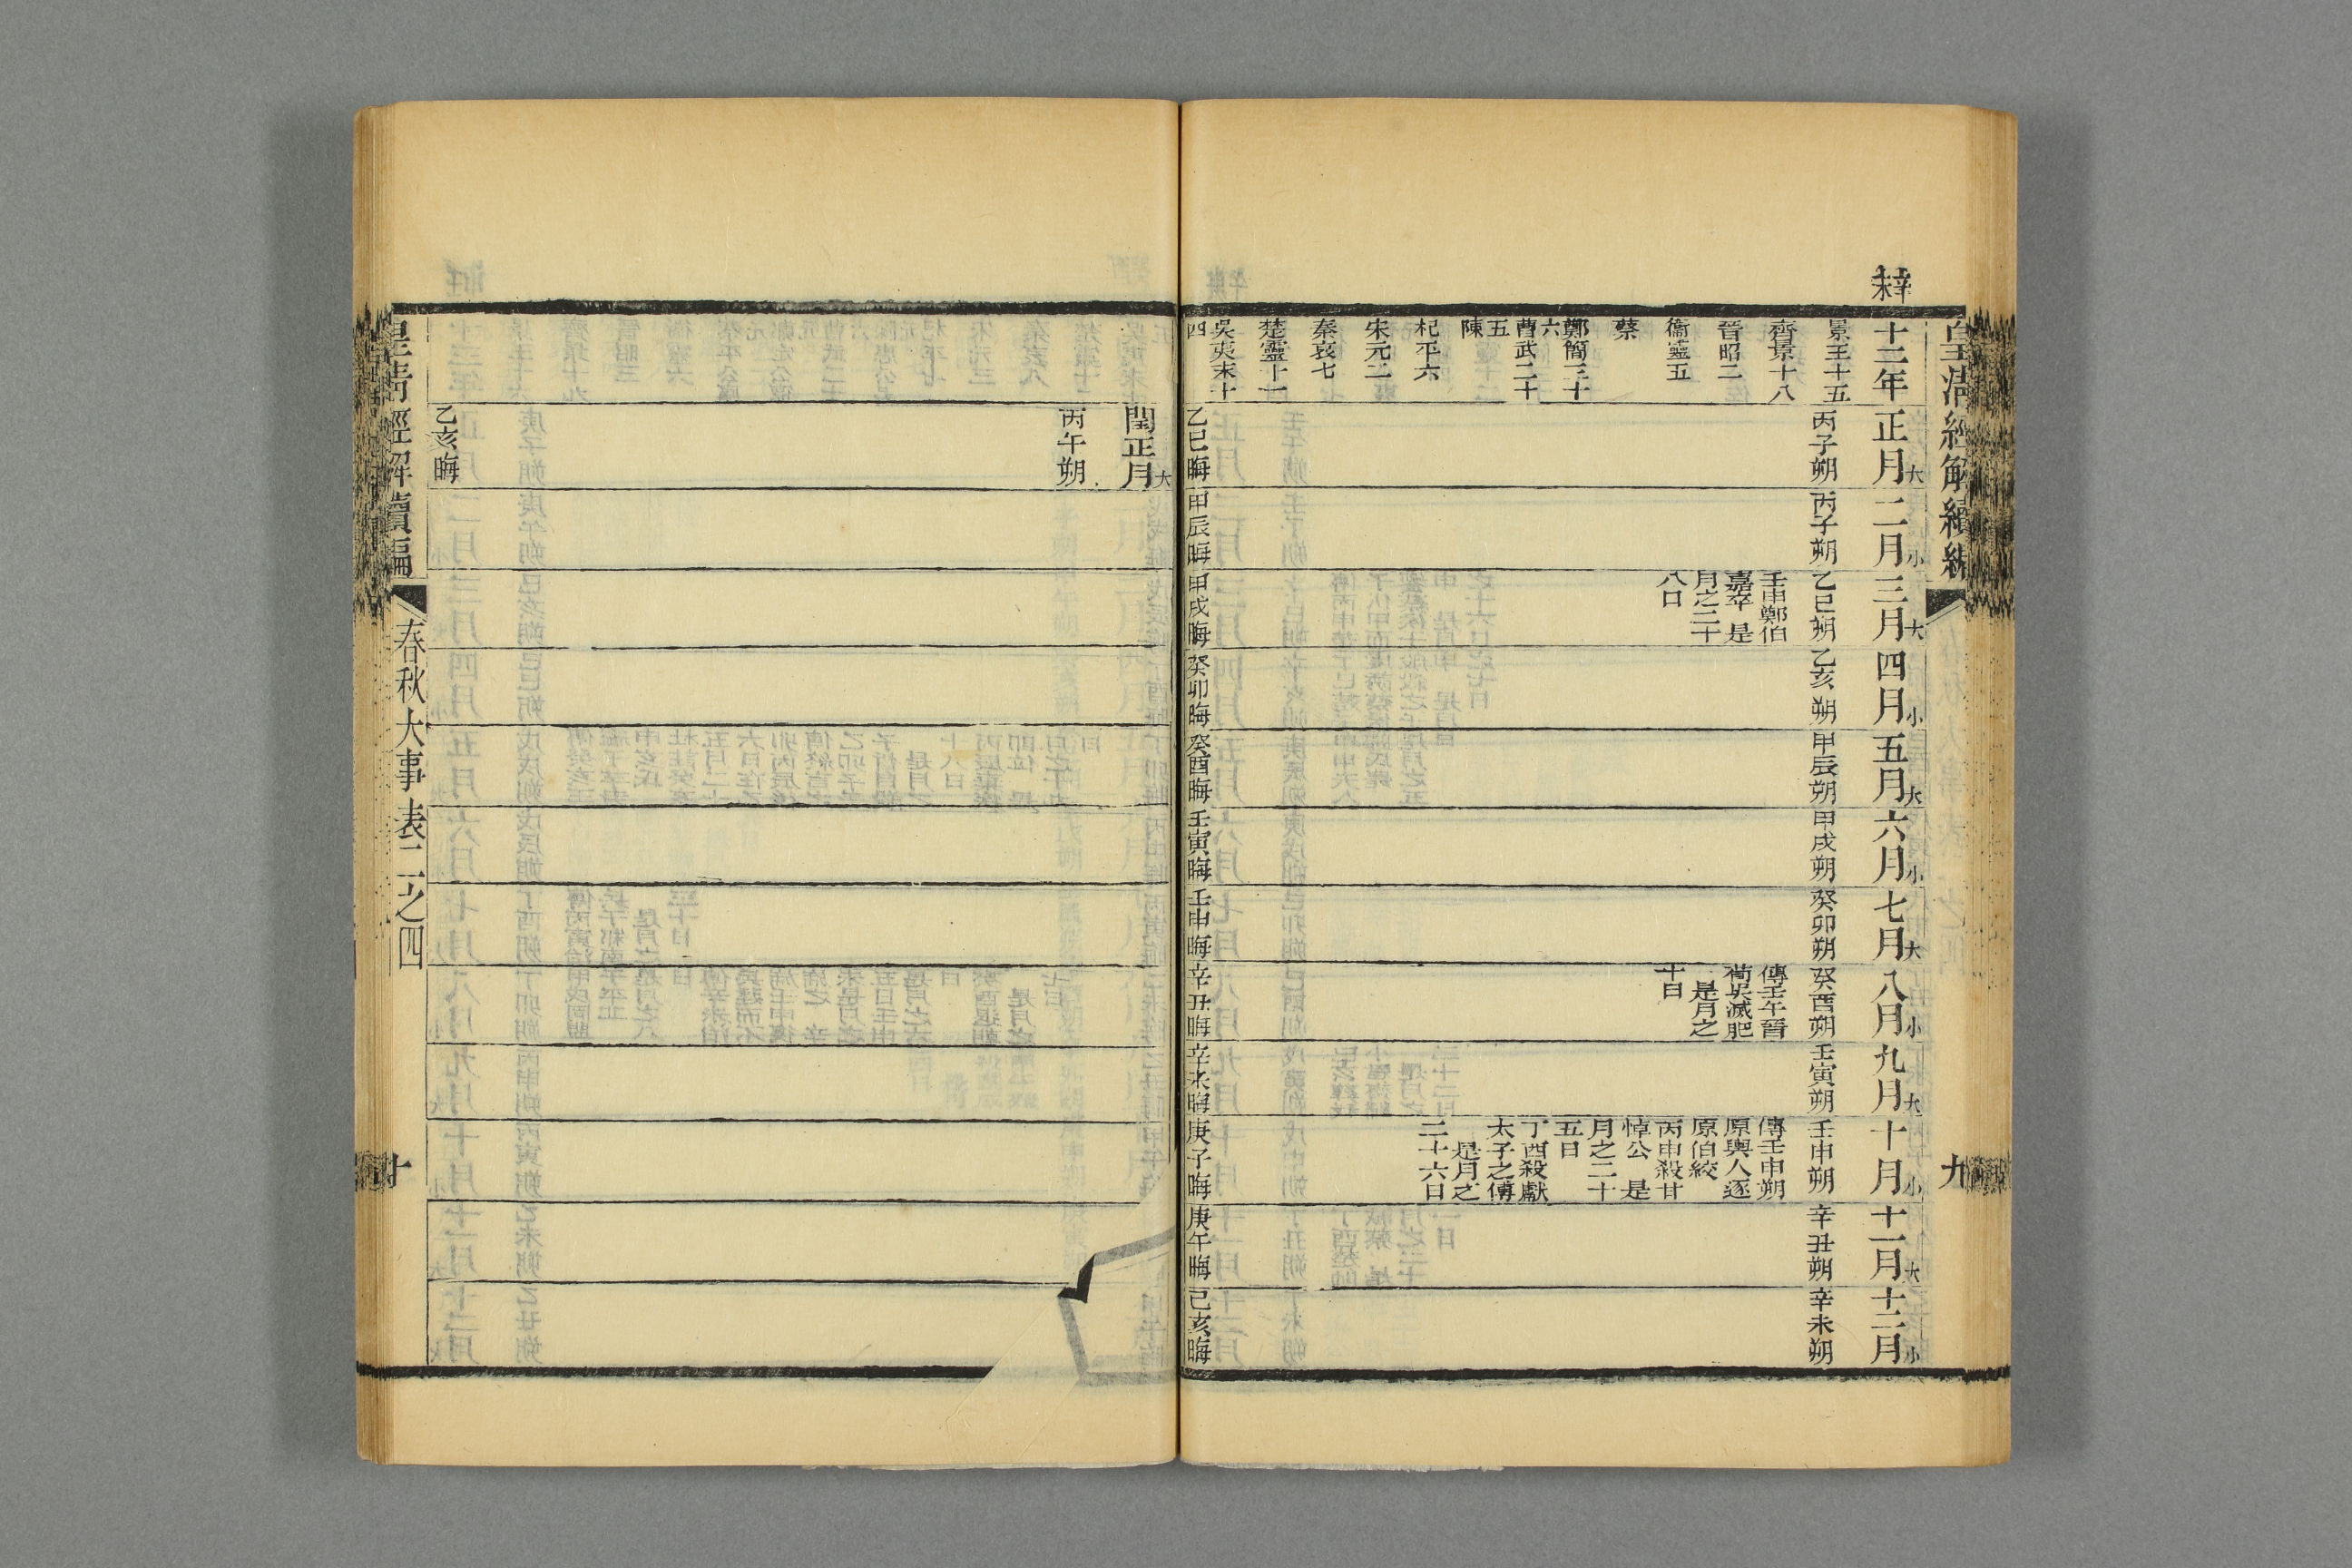 皇清經解續編
九
辛未
十二年
景王十五
齊景十八
晉昭二
衞靈五
蔡
鄭簡三十
六
曹武二十
五
陳
杞平六
宋元二
秦哀七
楚靈十一
吳夷末十
四
正月大
丙子朔
乙巳晦
二月小
丙子朔
甲辰晦
三月大
乙巳朔
壬申鄭伯
嘉卒 是
月之二十
八日
甲戌晦
四月小
乙亥朔
癸卯晦
五月大
甲辰朔
癸酉晦
六月小
甲戌朔
壬寅晦
七月大
癸卯朔
壬申晦
八月小
癸酉朔
傳壬午晉
荀吳滅肥
是月之
十日
辛丑晦
九月大
壬寅朔
辛未晦
十月小
壬申朔
傳壬申朔
原輿人逐
原伯絞
丙申殺甘
悼公 是
月之二十
五日
丁酉殺獻
太子之傅
是月之
二十六日
庚子晦
十一月大
辛丑朔
庚午晦
十二月小
辛未朔
己亥晦
閏正月大
丙午朔
乙亥晦
皇清經解續編
春秋大事表二之四
十